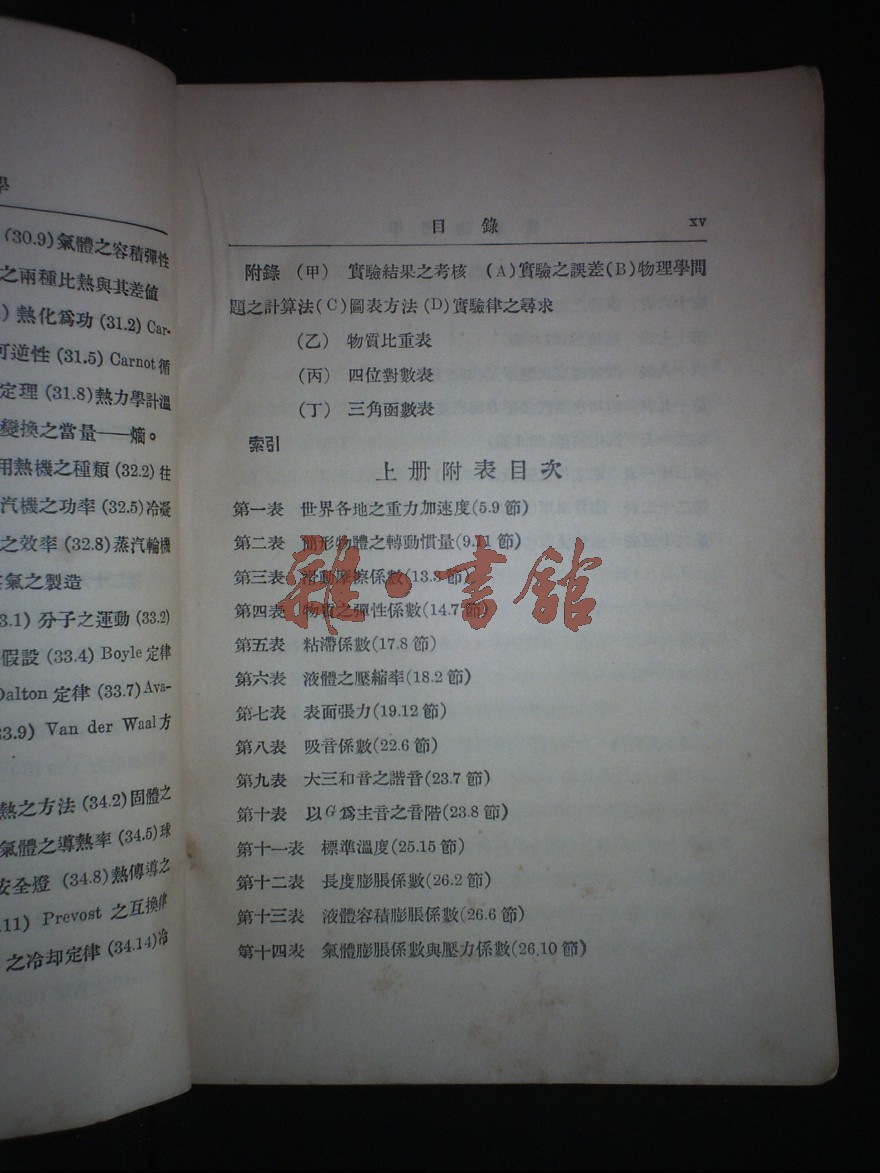 學
(30.9)氣體之容積彈性
之兩種比熱與其差値
熱化爲功 (31.2) Car-
可逆性 (31.5) Carnot 循
定理 (31.8)熱力學計溫
變換之當量——熵。
用熱機之種類 (32.2) 往
汽機之功率 (32.5)冷凝
之效率 (32.8)蒸汽輪機
氣之製造
3.1) 分子之運動 (33.2)
假設 (33.4) Boyle 定律
Dalton 定律 (33.7) Ava-
33.9) Van der Waal 方
熱之方法 (34.2)固體之
氣體之導熱率 (34.5)球
安全燈 (34.8)熱傳導之
.11) Prevost 之互換律
之冷却定律 (34.14)冷
目錄 xv
附錄 (甲) 實驗結果之考核 (A)實驗之誤差(B)物理學問
題之計算法(C)圖表方法(D)實驗律之尋求
(乙) 物質比重表
(丙) 四位對數表
(丁) 三角函數表
索引
上册附表目次
第一表 世界各地之重力加速度(5.9節)
第二表 簡形物體之轉動慣量(9.11節)
第三表 滑動摩擦係數(13.3節)
第四表 物質之彈性係數(14.7節)
第五表 粘滯係數(17.8節)
第六表 液體之壓縮率(18.2節)
第七表 表面張力(19.12節)
第八表 吸音係數(22.6節)
第九表 大三和音之諧音(23.7節)
第十表 以G爲主音之音階(23.8節)
第十一表 標準溫度(25.15節)
第十二表 長度膨脹係數(26.2節)
第十三表 液體容積膨脹係數(26.6節)
第十四表 氣體膨脹係數與壓力係數(26.10節)
雜·書館